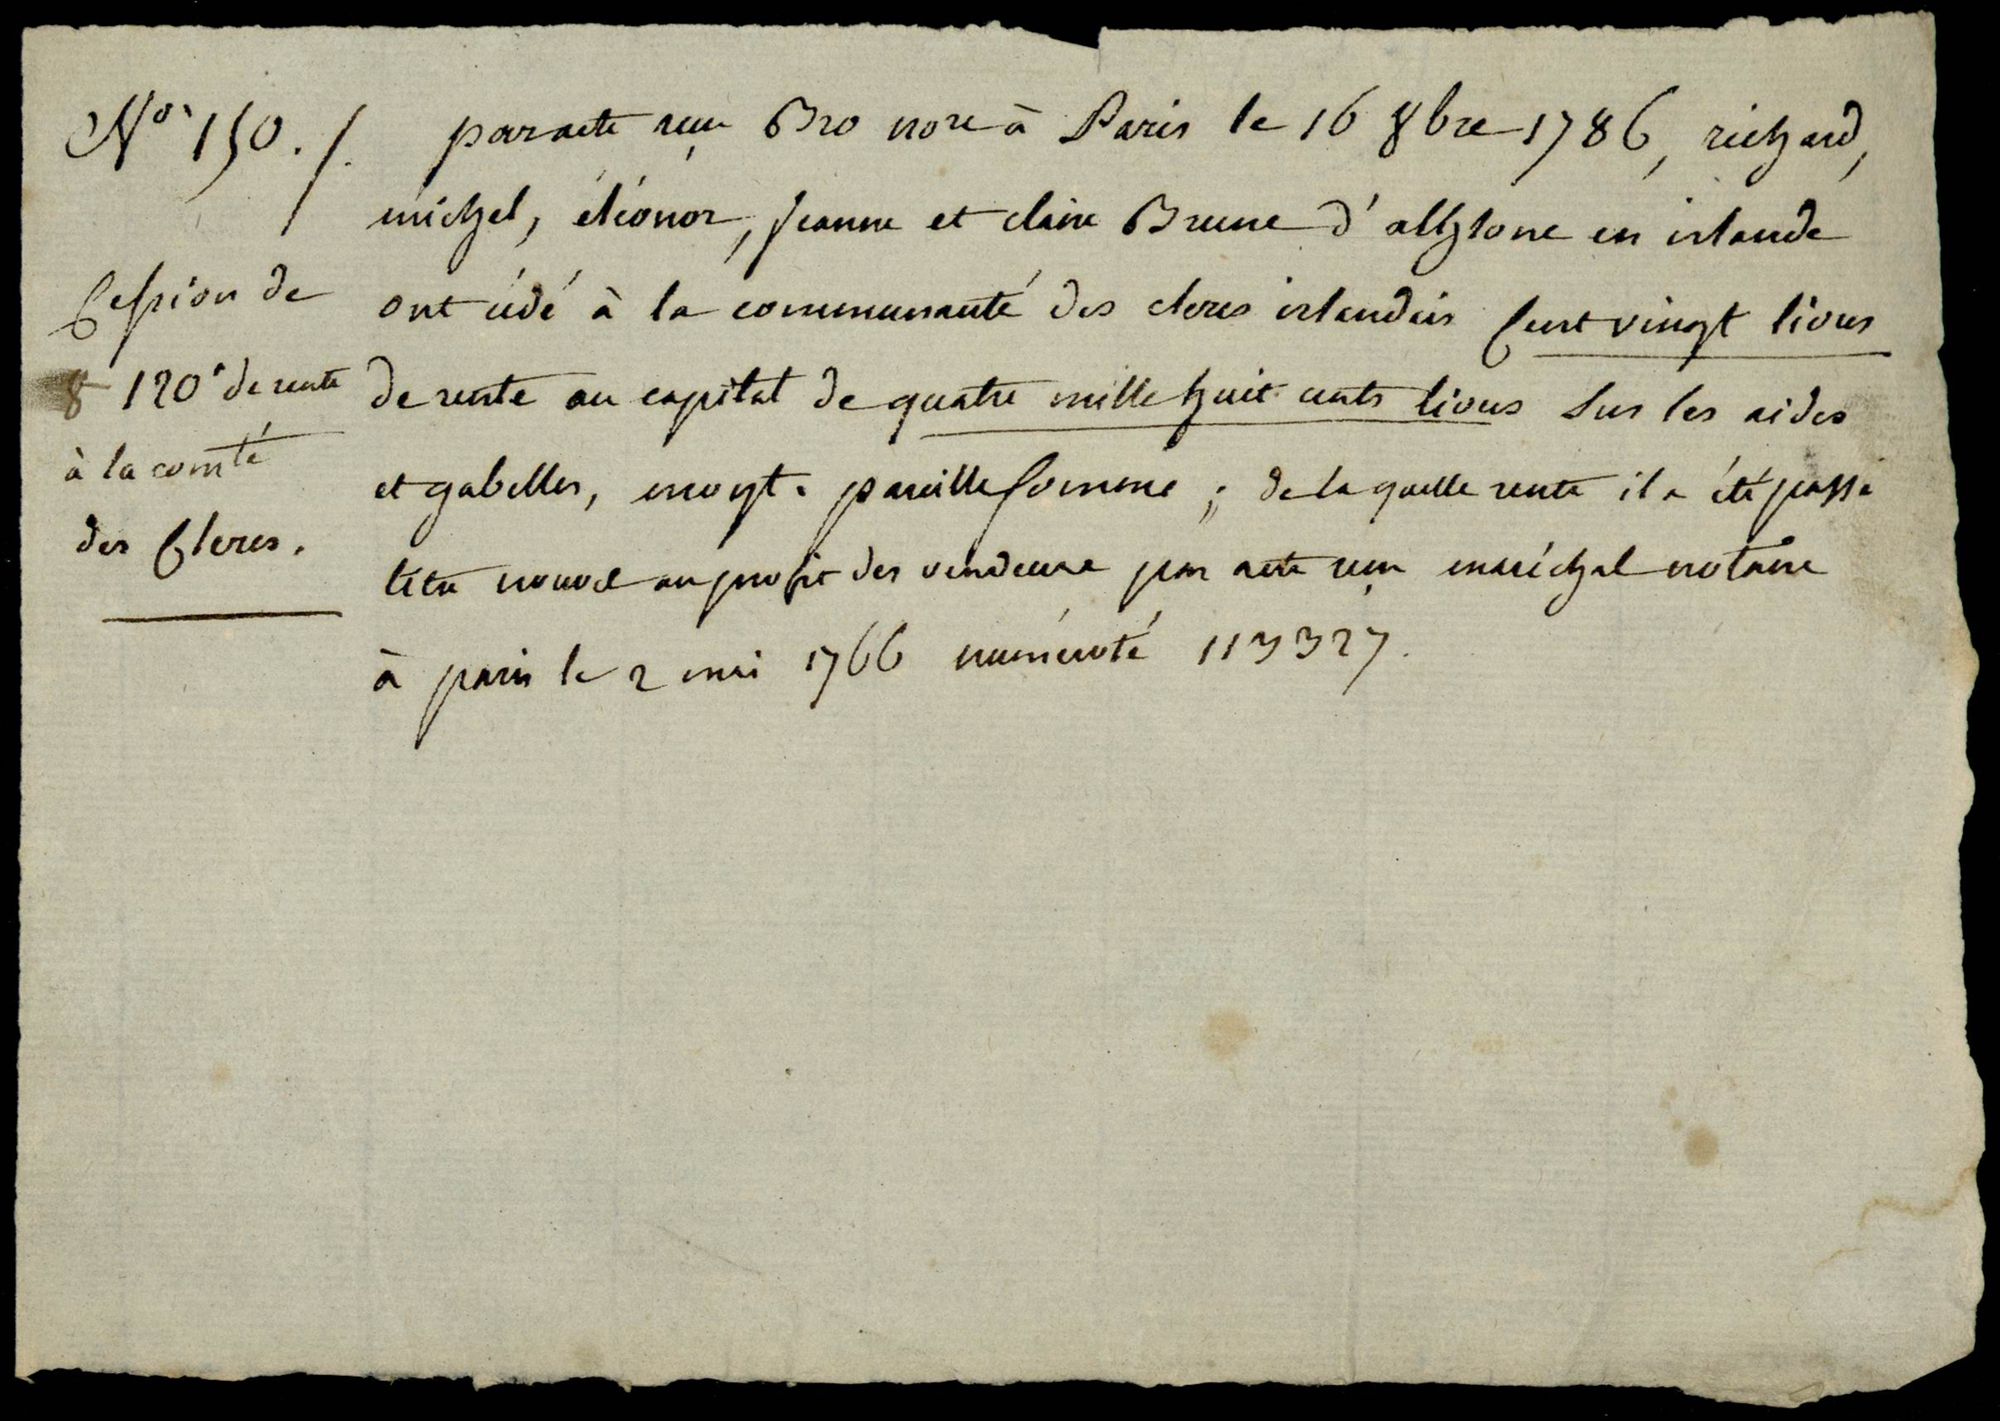 N° 150. /.
Cession de
120# de rente
à la comté
des Clercs.
par acte reçu Bro nore à Paris le 16 8bre 1786, richard,
michel, éléonor, Jeanne et claire Brune d'athlone en irlande
ont cédé à la communauté des clercs irlandais Cent vingt livres
de rente au capital de quatre mille huit cents livres sur les aides
et gabelles, moyt. pareille somme ; de laquelle rente il a été passé
titre nouvel au profit des vendeurs par acte reçu maréchal notaire
à paris le 2 mai 1766 numéroté 113327.